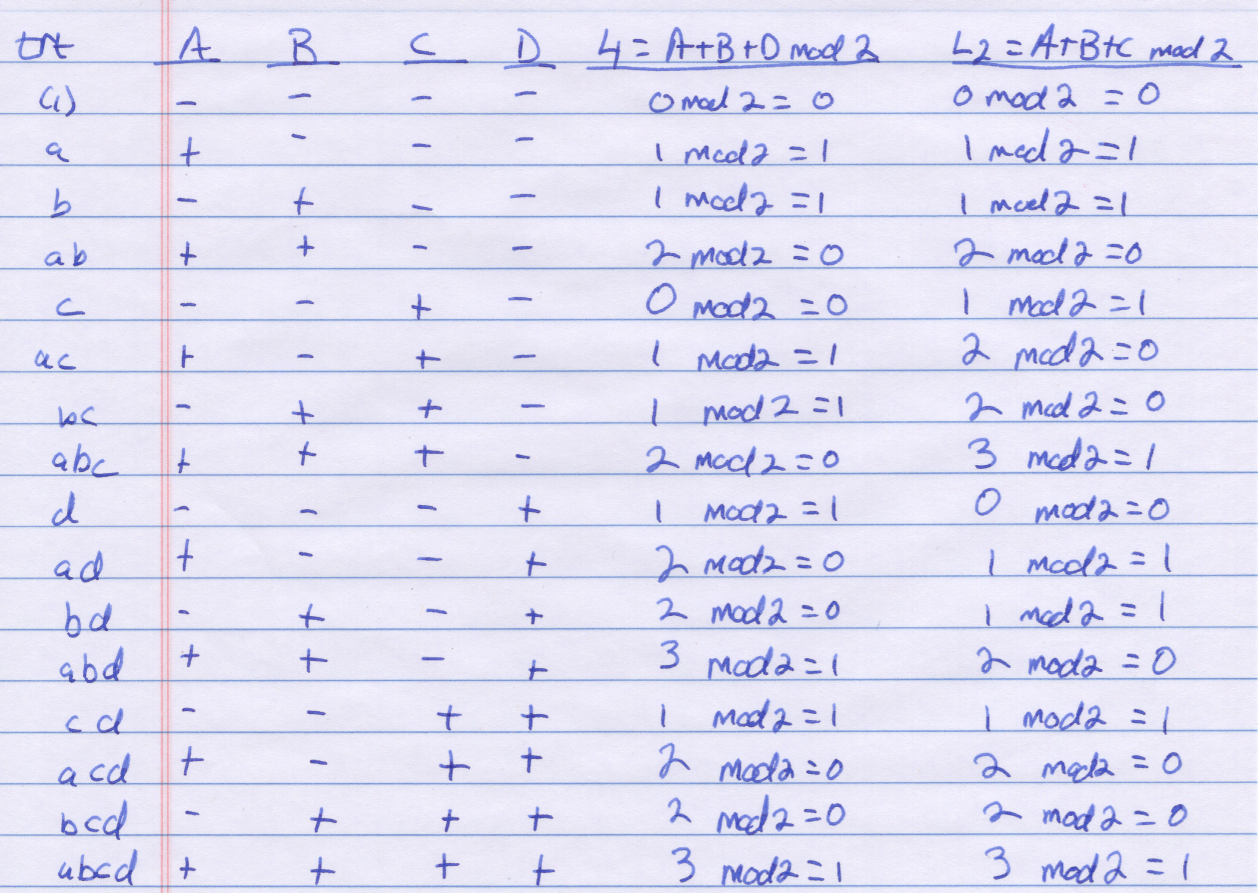 trt A B C D L1 = A+B+D mod 2 L2 = A+B+C mod 2
(1) - - - - 0 mod 2 = 0 0 mod 2 = 0
a + - - - 1 mod 2 = 1 1 mod 2 = 1
b - + - - 1 mod 2 = 1 1 mod 2 = 1
ab + + - - 2 mod 2 = 0 2 mod 2 = 0
c - - + - 0 mod 2 = 0 1 mod 2 = 1
ac + - + - 1 mod 2 = 1 2 mod 2 = 0
bc - + + - 1 mod 2 = 1 2 mod 2 = 0
abc + + + - 2 mod 2 = 0 3 mod 2 = 1
d - - - + 1 mod 2 = 1 0 mod 2 = 0
ad + - - + 2 mod 2 = 0 1 mod 2 = 1
bd - + - + 2 mod 2 = 0 1 mod 2 = 1
abd + + - + 3 mod 2 = 1 2 mod 2 = 0
cd - - + + 1 mod 2 = 1 1 mod 2 = 1
acd + - + + 2 mod 2 = 0 2 mod 2 = 0
bcd - + + + 2 mod 2 = 0 2 mod 2 = 0
abcd + + + + 3 mod 2 = 1 3 mod 2 = 1